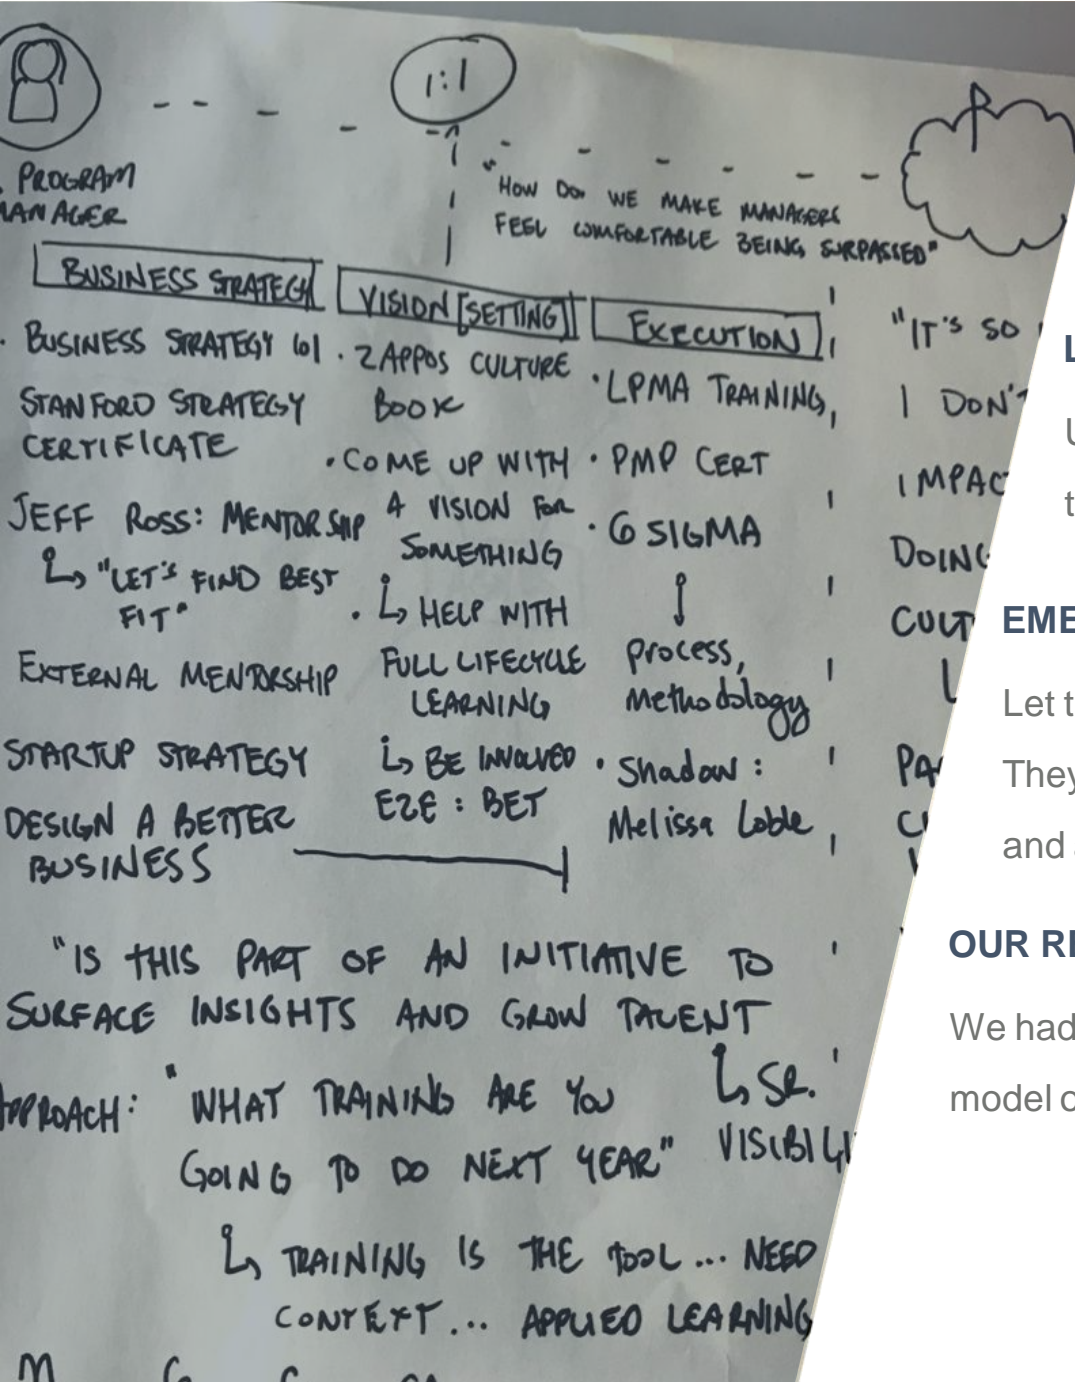 1:1
PROGRAM
MANAGER
"HOW DO WE MAKE MANAGERS
FEEL COMFORTABLE BEING SURPASSED"
BUSINESS STRATEGY
BUSINESS STRATEGY 101
STANFORD STRATEGY
CERTIFICATE
JEFF ROSS: MENTORSHIP
"LET'S FIND BEST
FIT"
EXTERNAL MENTORSHIP
STARTUP STRATEGY
DESIGN A BETTER
BUSINESS
VISION [SETTING]
· ZAPPOS CULTURE
BOOK
· COME UP WITH
A VISION FOR
SOMETHING
· HELP WITH
FULL LIFECYCLE
LEARNING
BE INVOLVED
E2E : BET
EXECUTION
· LPMA TRAINING
· PMP CERT
· 6 SIGMA
Process,
Methodology
· Shadow :
Melissa Loble
"IT'S SO
I DON'T
IMPAC
DOING
CULT
PA
"IS THIS PART OF AN INITIATIVE TO
SURFACE INSIGHTS AND GROW TALENT
SR.
VISIBILI
APPROACH: "WHAT TRAINING ARE YOU
GOING TO DO NEXT YEAR"
TRAINING IS THE TOOL... NEED
CONTEXT... APPLIED LEARNING
L
U
t
EME
Let t
They
and a
OUR RE
We had
model o